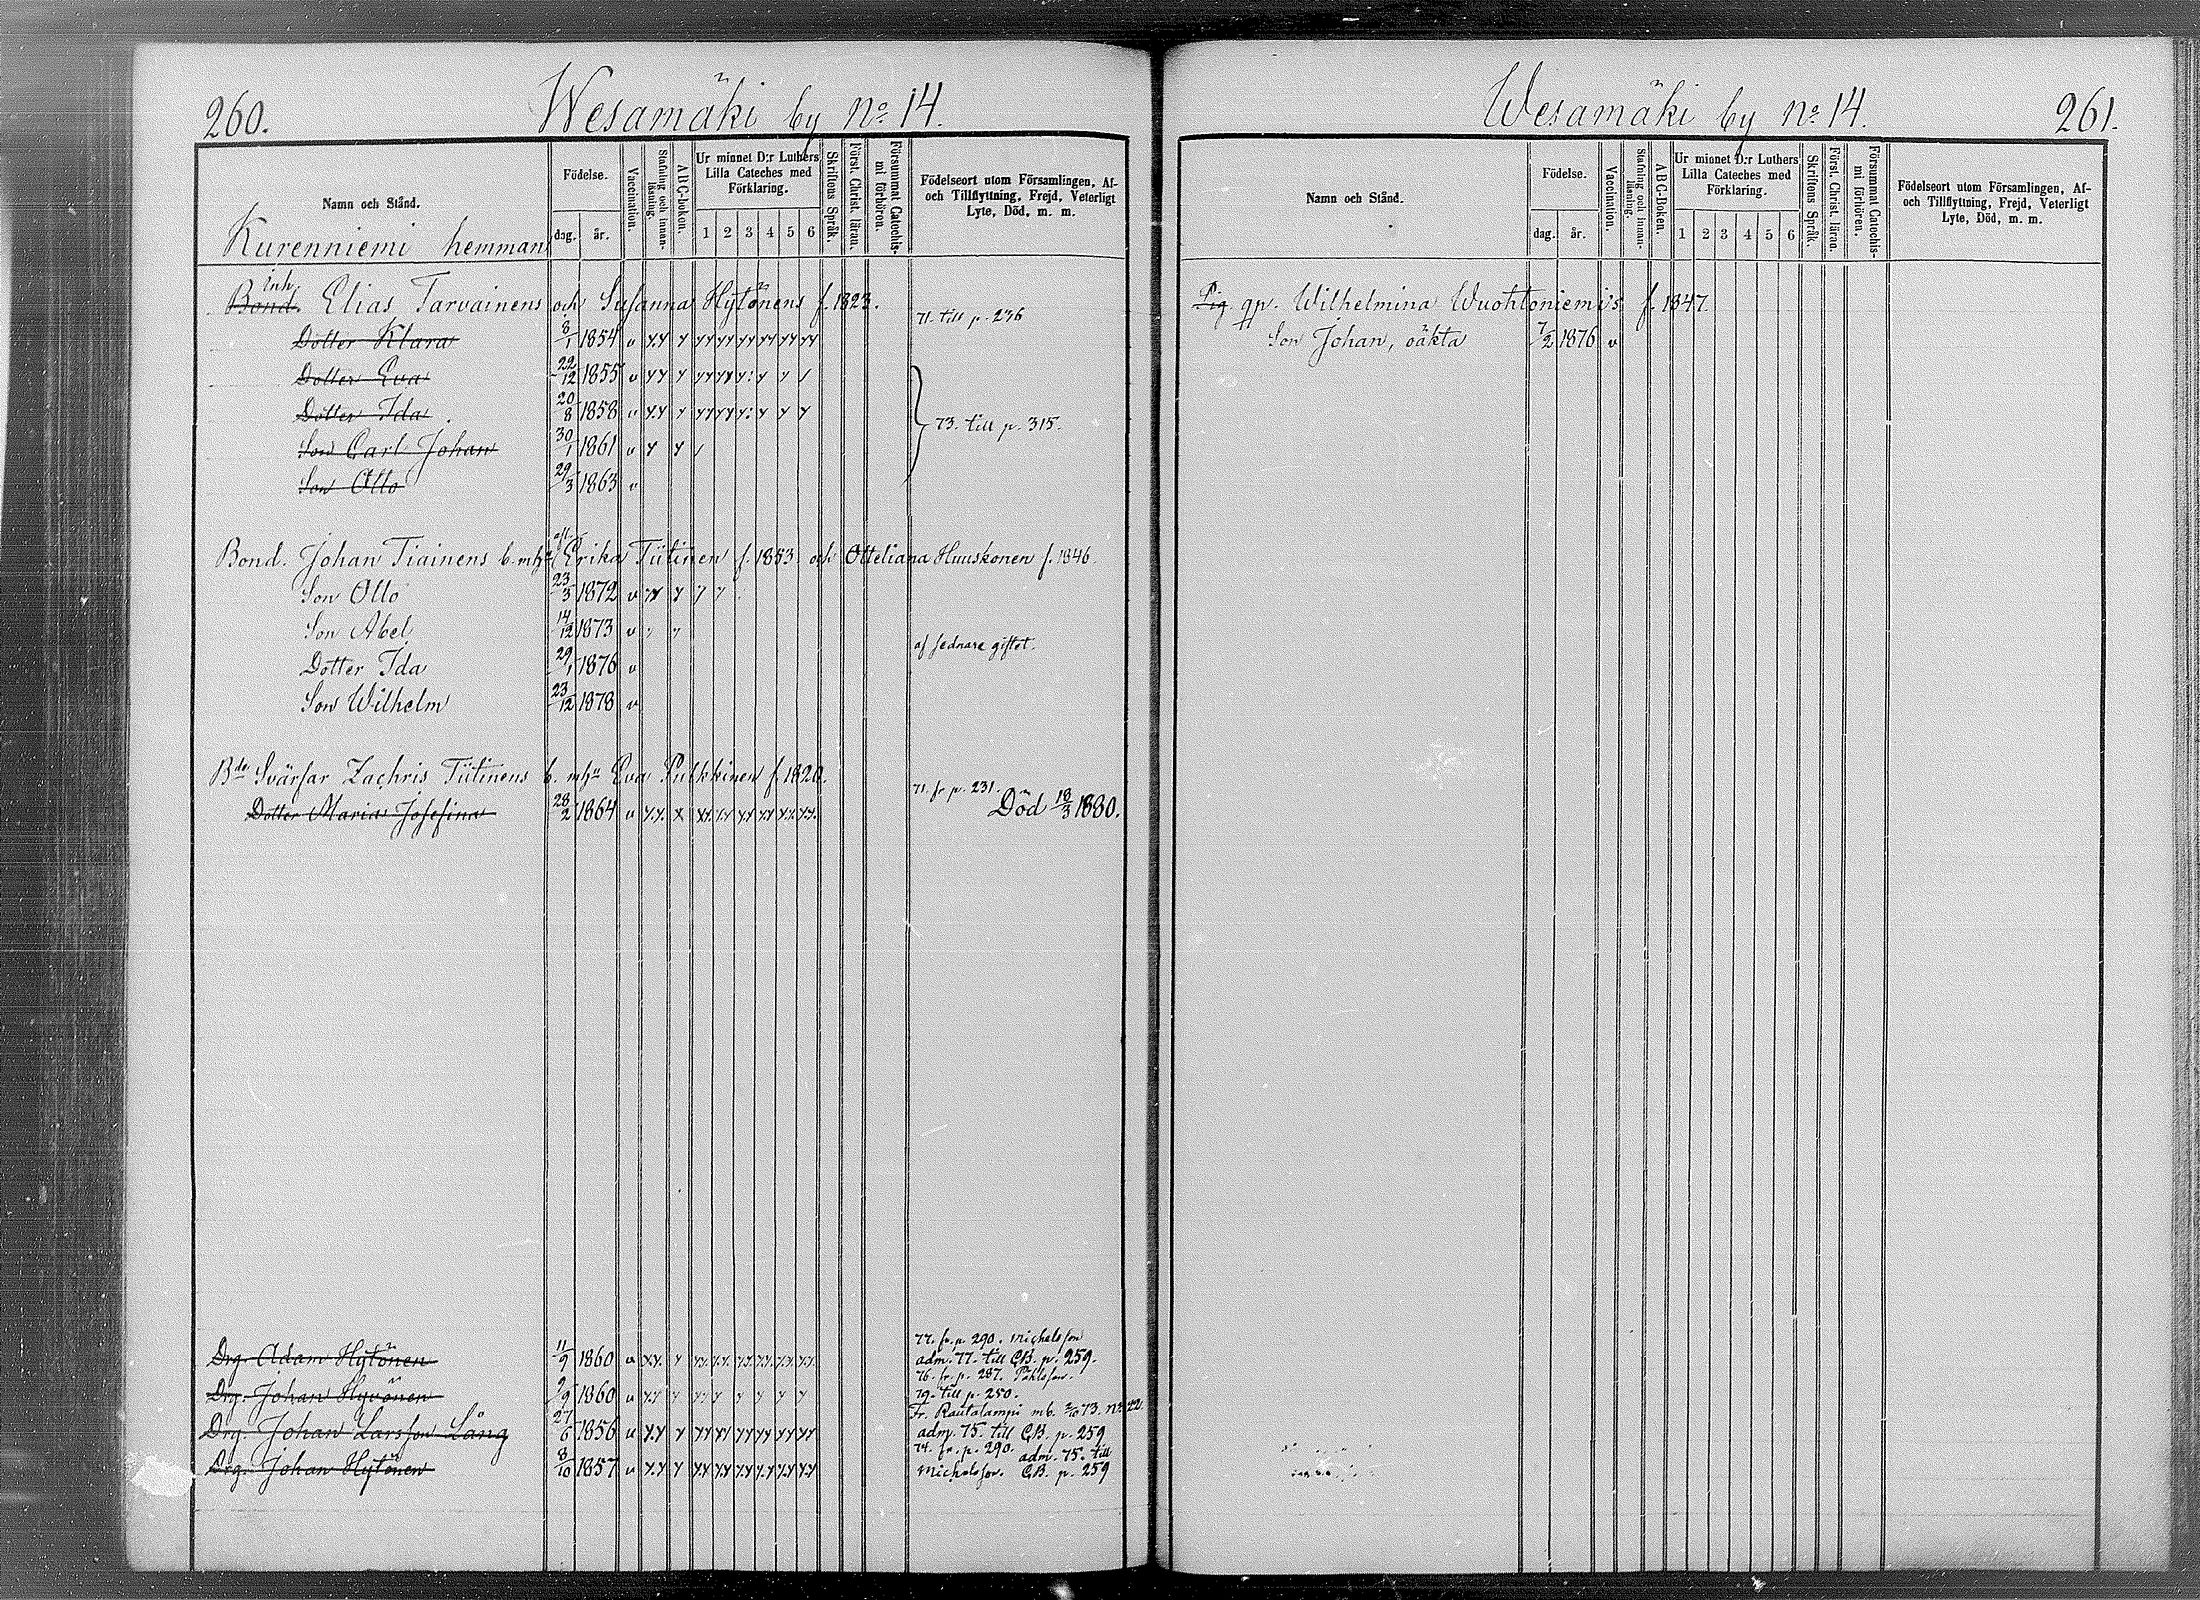 260.
Wesamäki by No 14.
Namn och Stånd.
Födelse.
dag.
år.
Vaccination.
Stafning och innanläsning.
ABC-boken.
Ur minnet D:r Luthers Lilla Cateches med Förklaring.
1 2 3 4 5 6
Skriftens Språk.
Först. Christ. läran.
Försummat Catechismi förhören.
Födelseort utom Församlingen, Af- och Tillflyttning, Frejd, Veterligt Lyte, Död, m. m.
Kurenniemi hemman
Inh.
Bond. Elias Tarvainens och Susanna Hytönens f. 1823.
71. till p. 236
Dotter Klara 8/1 1854 v
Dotter Eva 22/12 1855 v
Dotter Ida 20/8 1858 v
73. till p. 315.
Son Carl Johan 30/1 1861 v
Son Otto 29/3 1863 v
afl.
Bond. Johan Tiainens b. mhu Erika Tiitinen f. 1853 och Otteliana Huuskonen f. 1846.
Son Otto 23/3 1872 v
Son Abel 14/12 1873 v
af sednare giftet.
Dotter Ida 29/1 1876 v
Son Wilhelm 23/12 1878 v
Bde Svärfar Zachris Tiitinens b. mhu Eva Pulkkinen f. 1820.
71. fr p. 231.
Dotter Maria Josefina 28/2 1864 v
Död 18/3 1880.
77. fr. p. 290. Michelsson
Drg. Adam Hytönen 11/9 1860 v
adm. 77. till CB. p. 259.
76. fr. p. 287. Påhlsson.
Drg. Johan Hyvönen 9/9 1860 v
79. till p. 250.
Fr. Rautalampi mb. 2/10 73. No 22.
Drg. Johan Larsson Lång 27/6 1856 v
adm. 75. till CB. p. 259
74. fr. p. 290. adm. 75. till
Drg. Johan Hytönen 8/10 1857 v
Michelsson. CB. p. 259
Wesamäki by No 14.
261.
Namn och Stånd.
Födelse.
dag.
år.
Vaccination.
Stafning och innanläsning.
ABC-Boken.
Ur minnet D:r Luthers Lilla Cateches med Förklaring.
1 2 3 4 5 6
Skriftens Språk.
Först. Christ. läran.
Försummat Catechismi förhören.
Födelseort utom Församlingen, Af- och Tillflyttning, Frejd, Veterligt Lyte, Död, m. m.
Pig. qp. Wilhelmina Wuohtoniemis f. 1847.
Son Johan, oäkta 7/2 1876 v